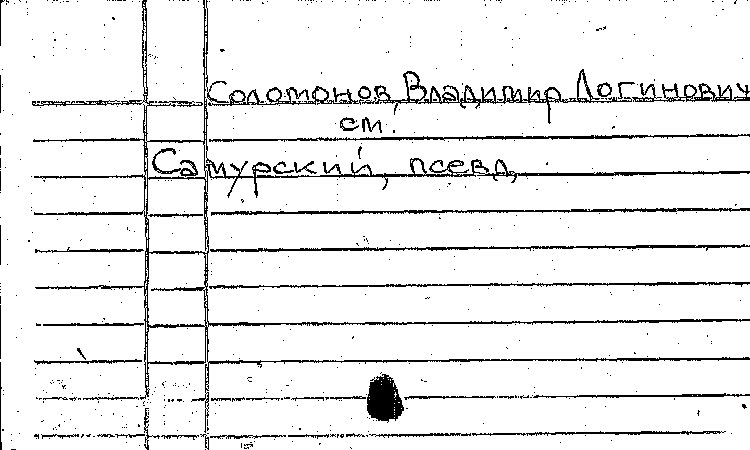 Соломонов, Владимир Логинович
см.
Самурский, псевд.